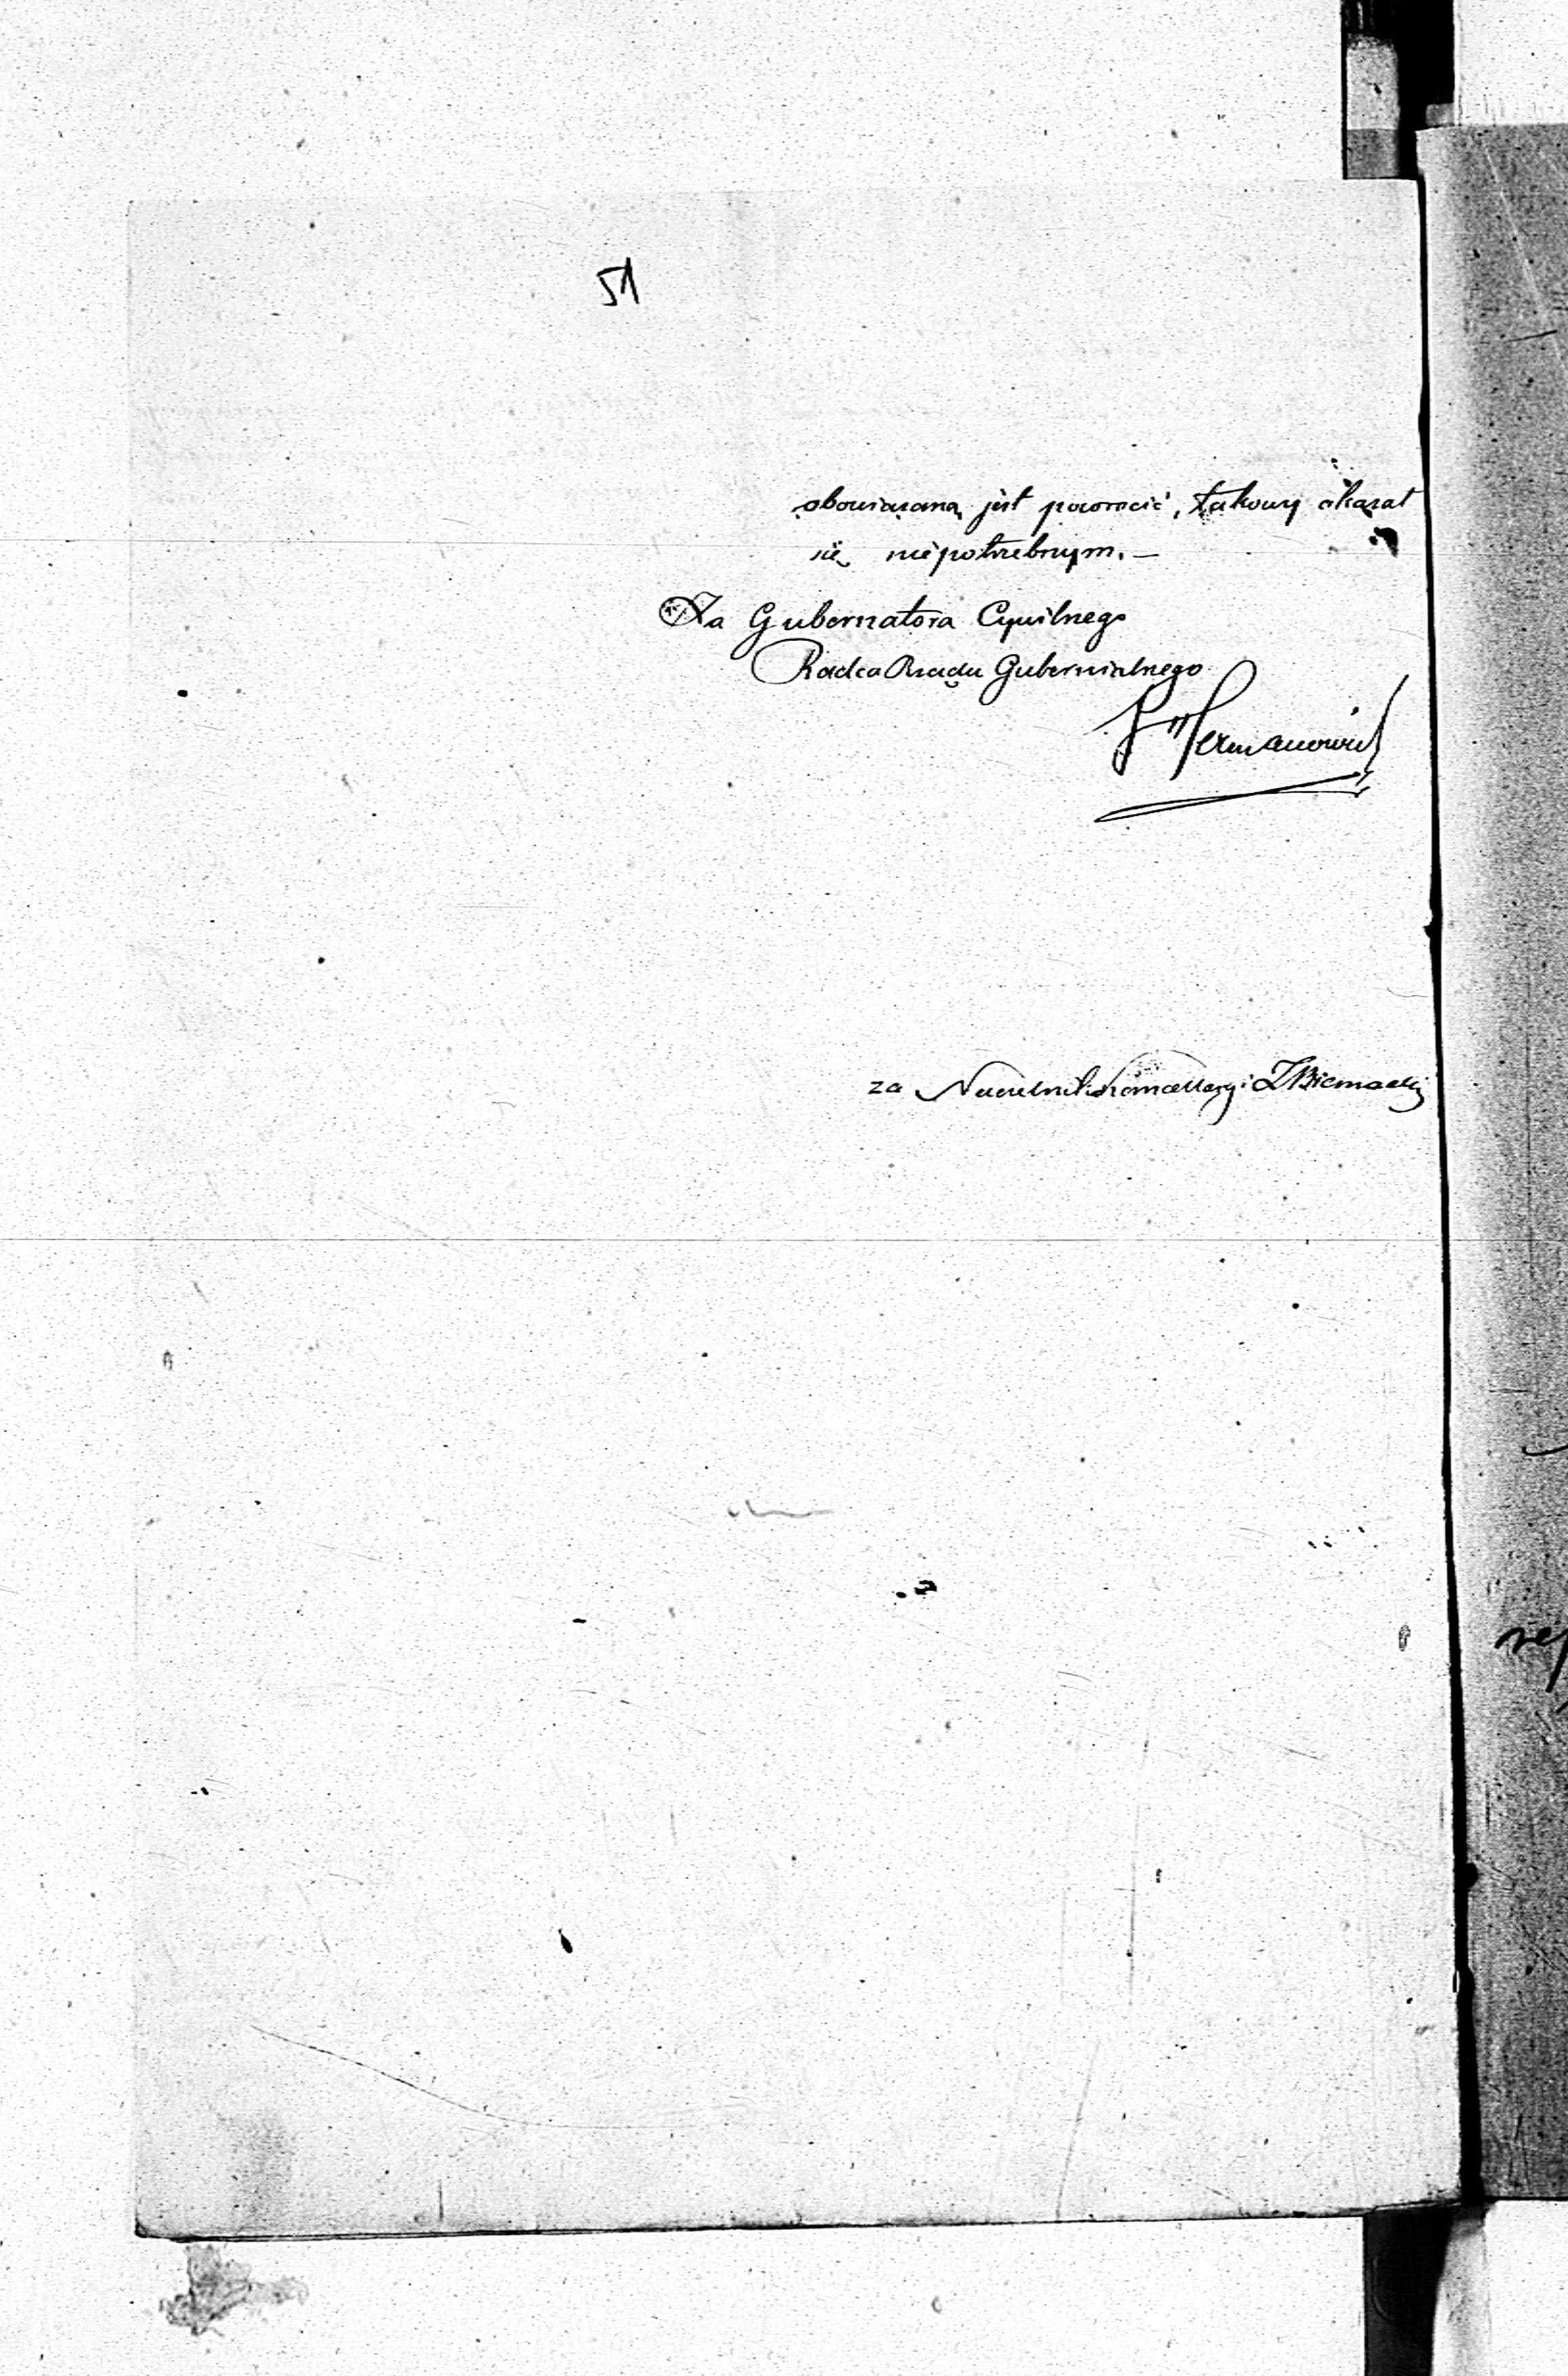 51
obowiązaną jest powrócić, takowy okazał
się niepotrzebnym. —
Za Gubernatora Cywilnego
Radca Rządu Gubernialnego
Hermanowicz
za Naczelnika Kancellaryi Biernacki